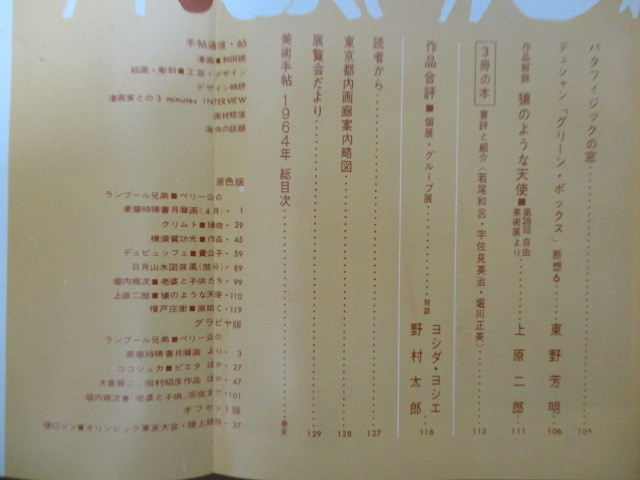 パタフィジックの窓 105
デュシャン「グリーン・ボックス」断想6 東野芳明 106
作品解説 猿のような天使■第28回 自由美術展より 上原二郎 111
3冊の本 書評と紹介〈若尾和呂・宇佐見英治・堀川正美〉 112
作品合評■個展・グループ展 対談 ヨシダ・ヨシエ 野村太郎 116
読者から 127
東京都内画廊案内略図 128
展覧会だより 129
美術手帖 1964年 総目次 巻末
手帖通信・65
漫画■和田誠
絵画・彫刻■工芸・デザイン
デザイン時評
漫画家との3 minutes INTERVIEW
画材短信
海外の話題
原色版
ランブール兄弟■ベリー公の
豪華時祷書月暦画(4月)・1
クリムト■接吻・29
横須賀功光■作品・45
デュビュッフェ■貴公子・59
日月山水図屏風(部分)・89
堀内規次■老婆と子供たち・99
上原二郎■猿のような天使・110
慣戸庄衛■原始C・119
グラビヤ版
ランブール兄弟■ベリー公の
豪華時祷書月暦画 より・3
ココシュカ■ピエタ ほか・27
岡村昭彦作品 ほか・47
堀内規次■「老婆と子供」完成まで・101
オフセット版
ロシン■オリンピック東京大会・陸上競技・37